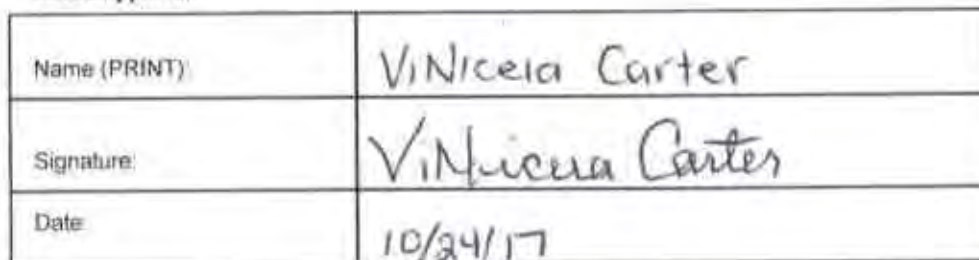 Name (PRINT): ViNiceia Carter
Signature: ViNiceia Carter
Date: 10/24/17